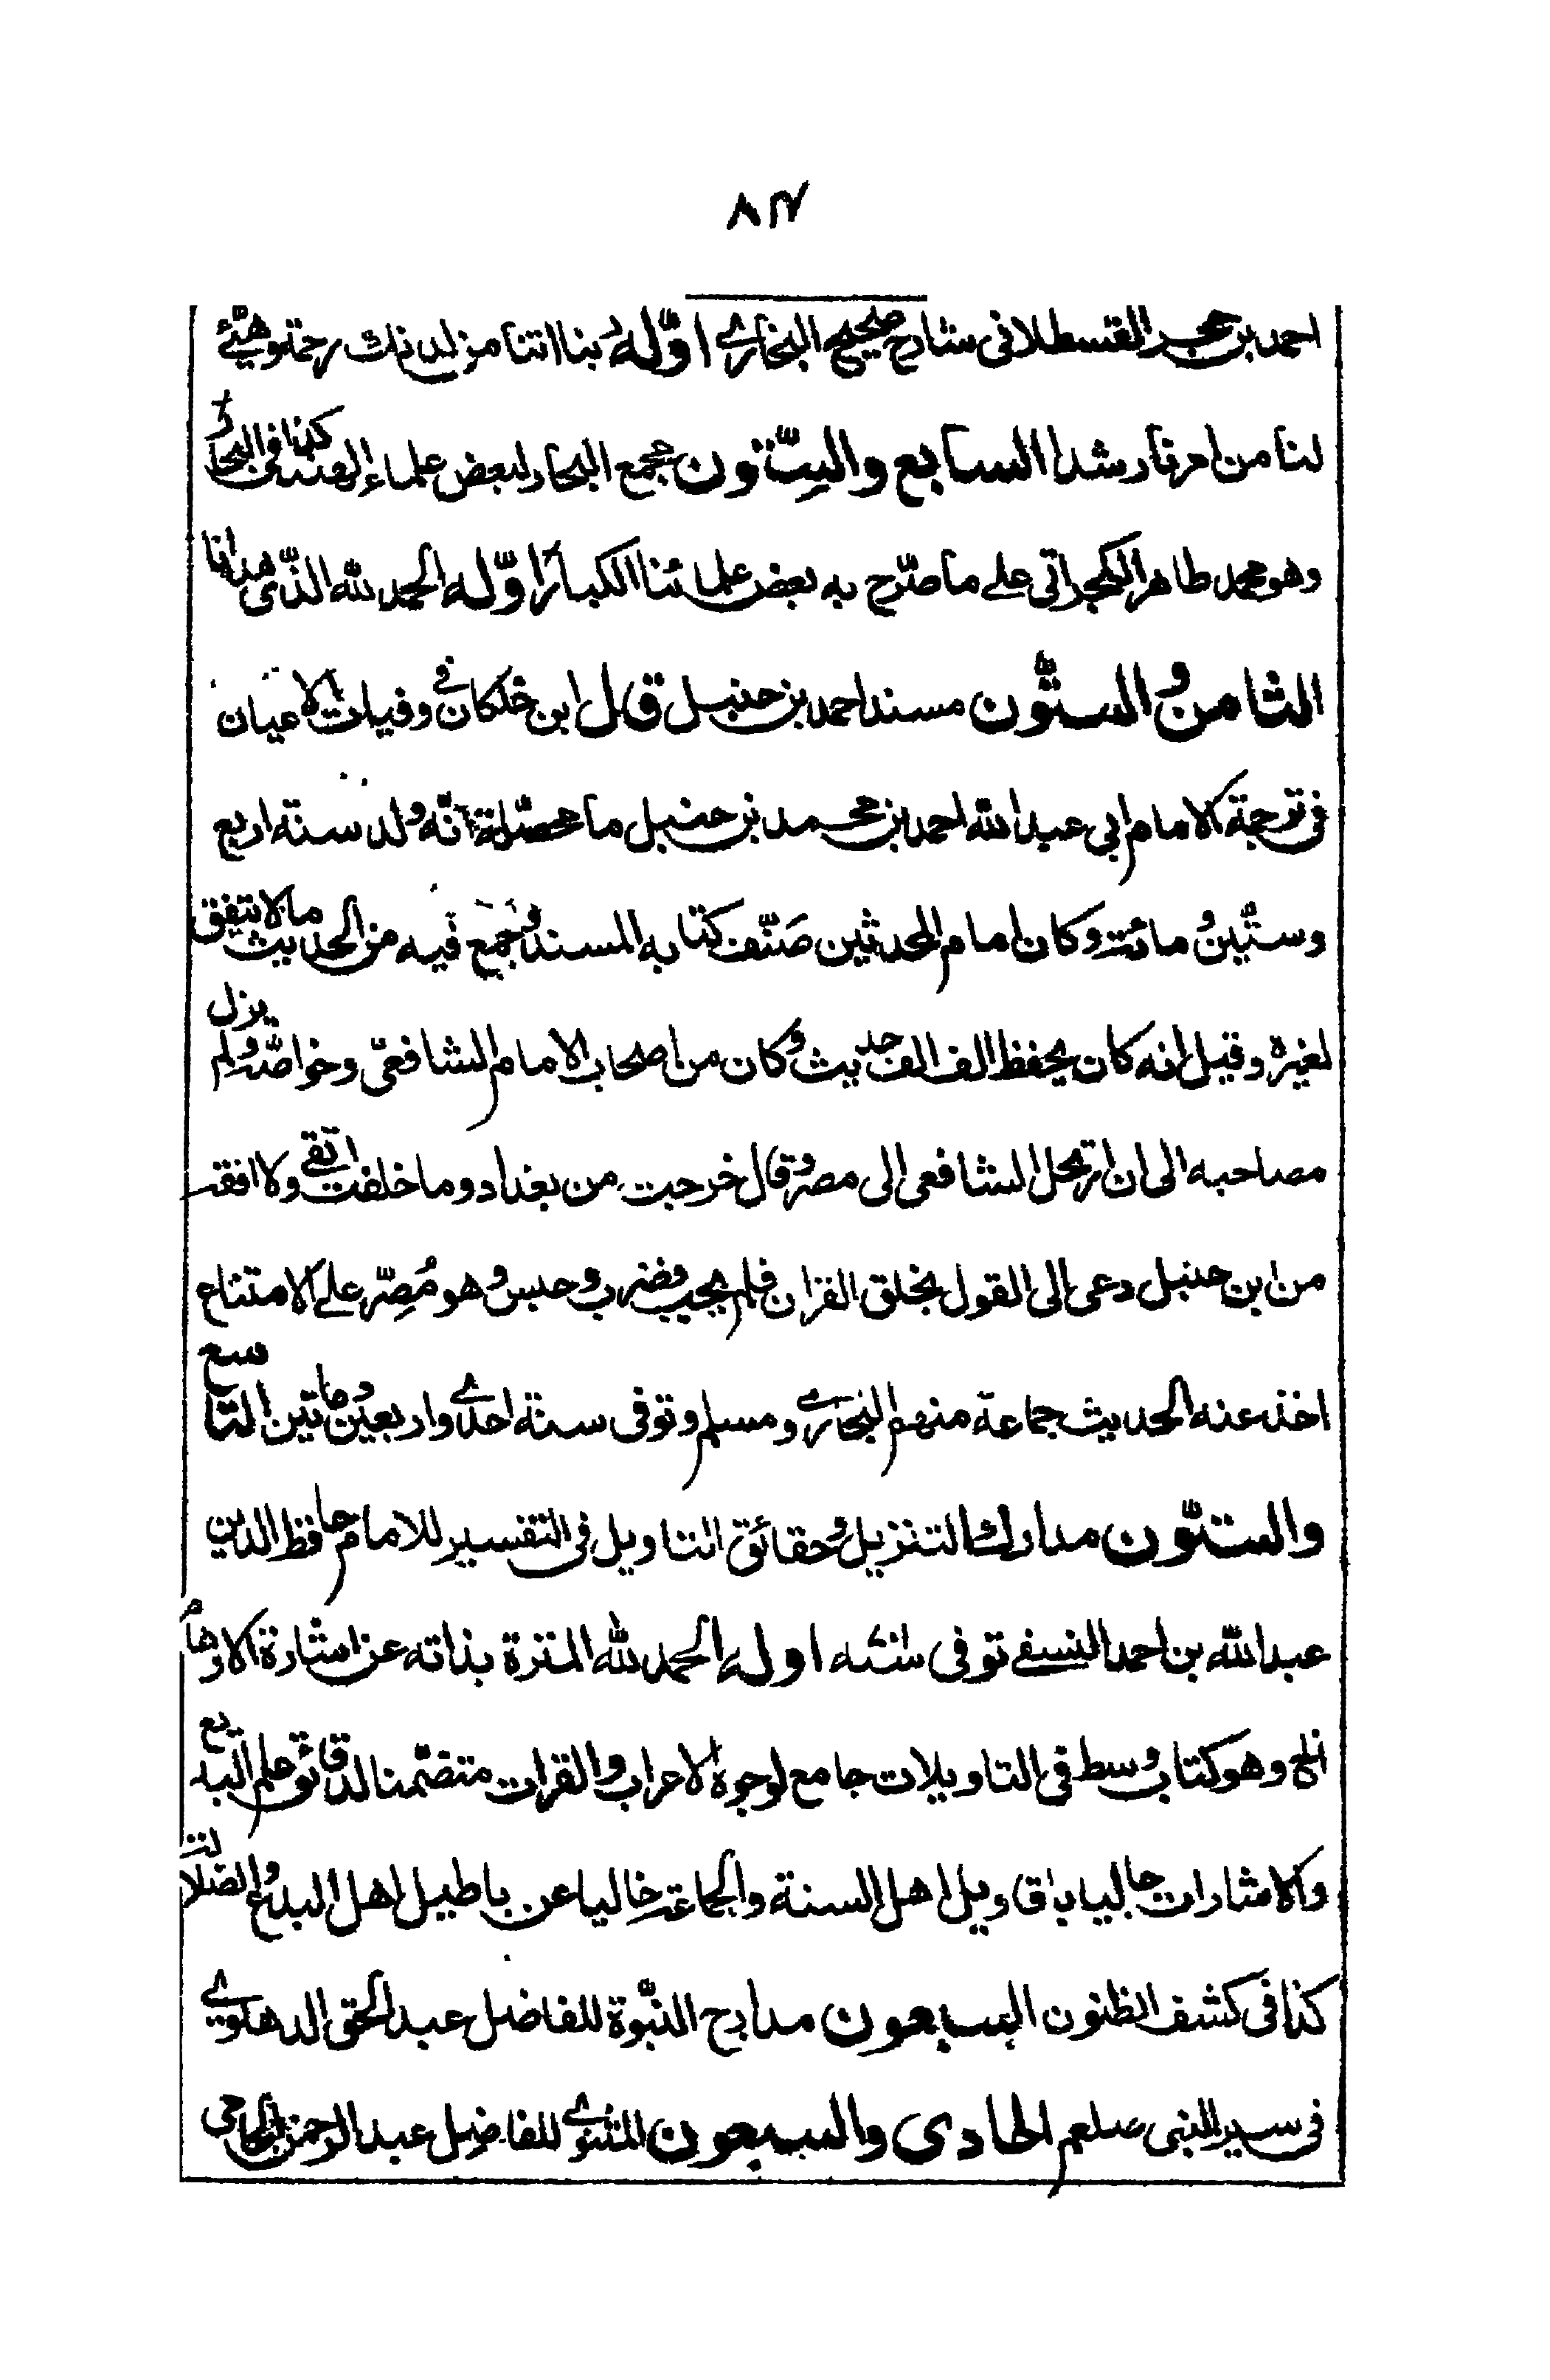 ٨٣
احمد بن حجر القسطلانى شارح صحيح البخارى اوّله ربنا اتنا من لدنك رحمة وهيّئ
لنا من امرنا رشدا السابع والسِتّون مجمع البحار لبعض علماء الهند كذا فى البحار
وهو محمد طاهر الگجراتى على ما صرّح به بعض علمائنا الكبار اوّله الحمد لله الذّى هدانا
الثامن والستّون مسند احمد بن حنبل قال ابن خلكان فى وفيات الاعيان
فى ترجمة الامام ابى عبد الله احمد بن محمد بن حنبل ما محصّله انّه ولد سنة اربع
وستّين ومائة وكان امام المحدثين صَنّف كتابه المسند وجمع فيه من الحديث ما لا يتفق
لغيره وقيل انه كان يحفظ الف الف حديث وكان من اصحاب الامام الشافعىّ وخواصّه ولم يزل
مصاحبه الى ان ارتحل الشافعى الى مصر وقال خرجت من بغداد وما خلفت اتقى ولا افقه
من ابن حنبل دعى الى القول بخلق القران فلم يجب فضرب وحبس وهو مُصِرّ على الامتناع
اخذ عنه الحديث جماعة منهم البخارى ومسلم وتوفى سنة احدى واربعين ومائتين التاسع
والستّون مدارك التنزيل وحقائق التاويل فى التفسير للامام حافظ الدين
عبد الله بن احمد النسفى توفى سنه اوله الحمد لله المنزه بذاته عن اشارة الاوهام
الخ وهو كتاب وسط فى التاويلات جامع لوجوه الاعراب والقرات متضمّنا لدقائق علم البديع
والاشارات حاليا باقاويل اهل السنة والجماعة خاليا عن باطيل اهل البدع والضلالة
كذا فى كشف الظنون السبعون مدارج النبّوة للفاضل عبد الحق الدهلوى
فى سير النبى صلعم الحادى والسبعون المثنوى للفاضل عبد الرحمن الجامى